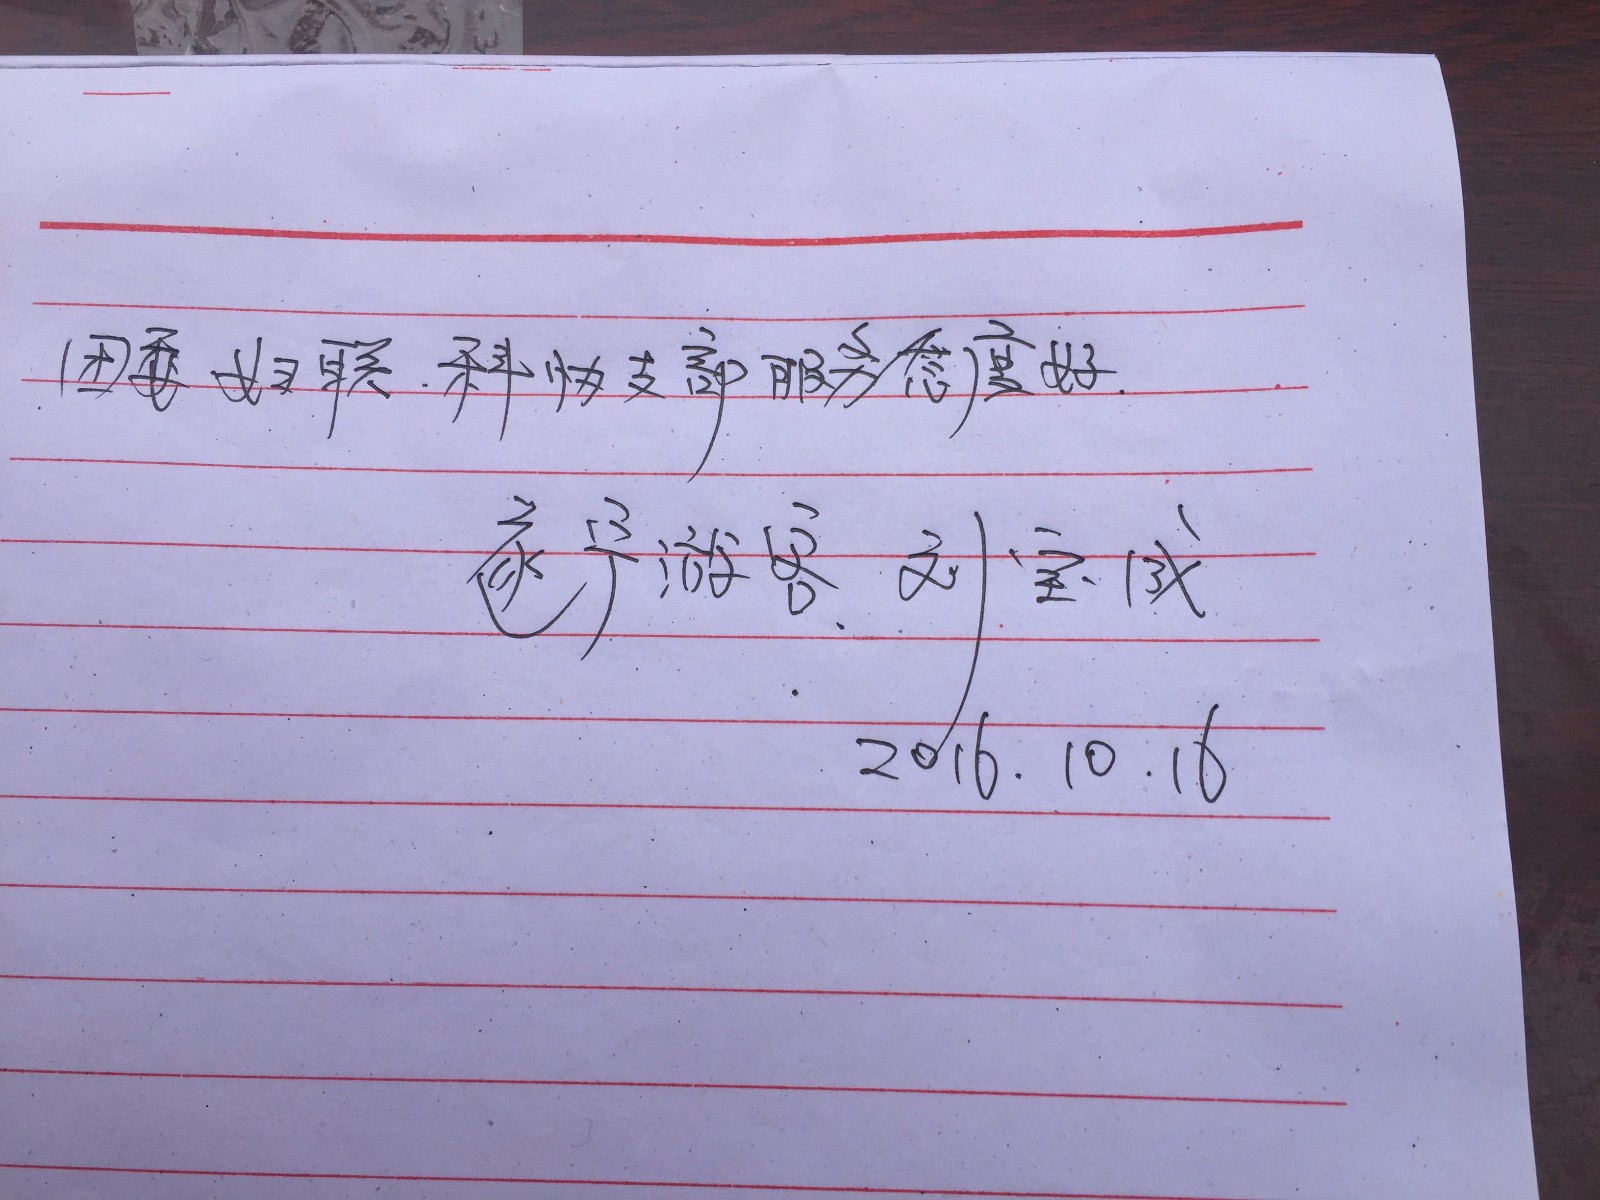 团委妇联.科协支部服务态度好.
辽宁游客.刘宝成
2016.10.16